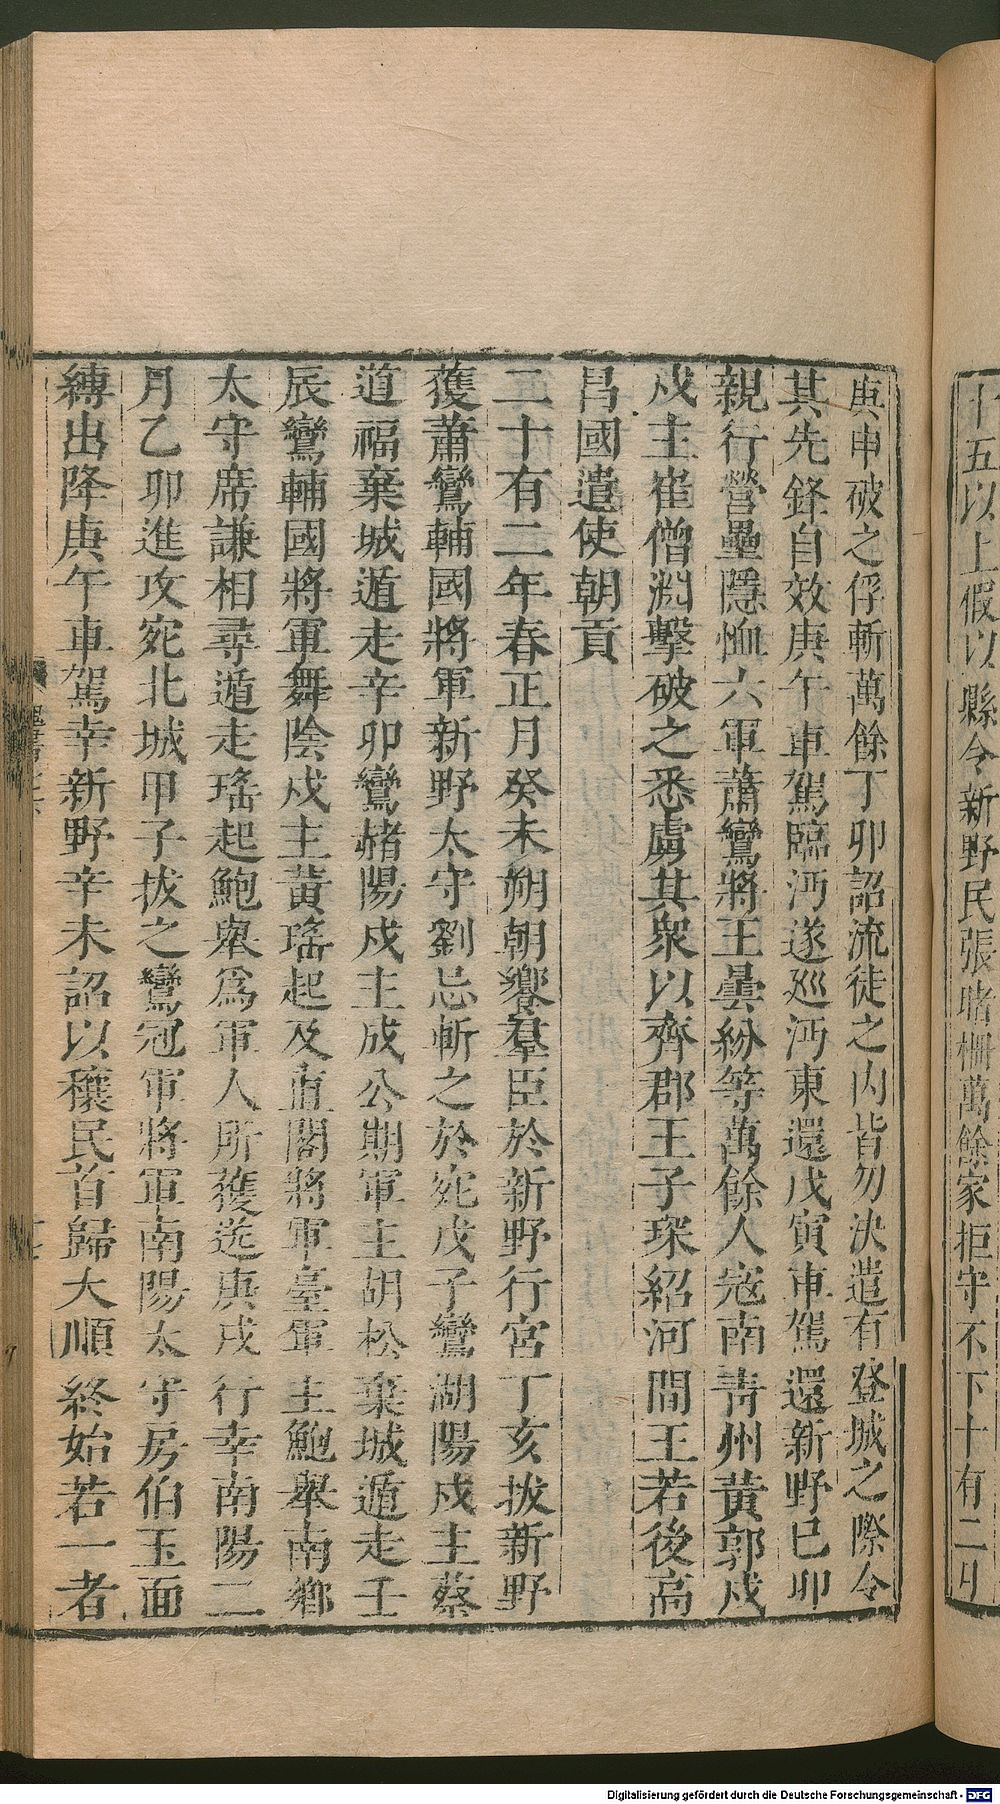 十五以上假以縣令新野民張睹柵萬餘家拒守不下十有二月
庚申破之俘斬萬餘丁卯詔流徒之內皆勿決遣有登城之際令
其先鋒自效庚午車駕臨沔遂巡沔東還戊寅車駕還新野巳卯
親行營壘隱恤六軍蕭鸞將王曇紛等萬餘人寇南青州黃郭戍
戍主崔僧淵擊破之悉虜其衆以齊郡王子琛紹河間王若後高
昌國遣使朝貢
二十有二年春正月癸未朔朝饗羣臣於新野行宮丁亥拔新野
獲蕭鸞輔國將軍新野太守劉忌斬之於宛戊子鸞湖陽戍主蔡
道福棄城遁走辛卯鸞赭陽戍主成公期軍主胡松棄城遁走壬
辰鸞輔國將軍舞陰戍主黃瑤起及直閣將軍臺軍主鮑舉南鄉
太守席謙相尋遁走瑤起鮑舉爲軍人所獲送庚戌行幸南陽二
月乙卯進攻宛北城甲子拔之鸞冠軍將軍南陽太守房伯玉面
縛出降庚午車駕幸新野辛未詔以穰民首歸大順終始若一者
Digitalisierung gefördert durch die Deutsche Forschungsgemeinschaft - DFG